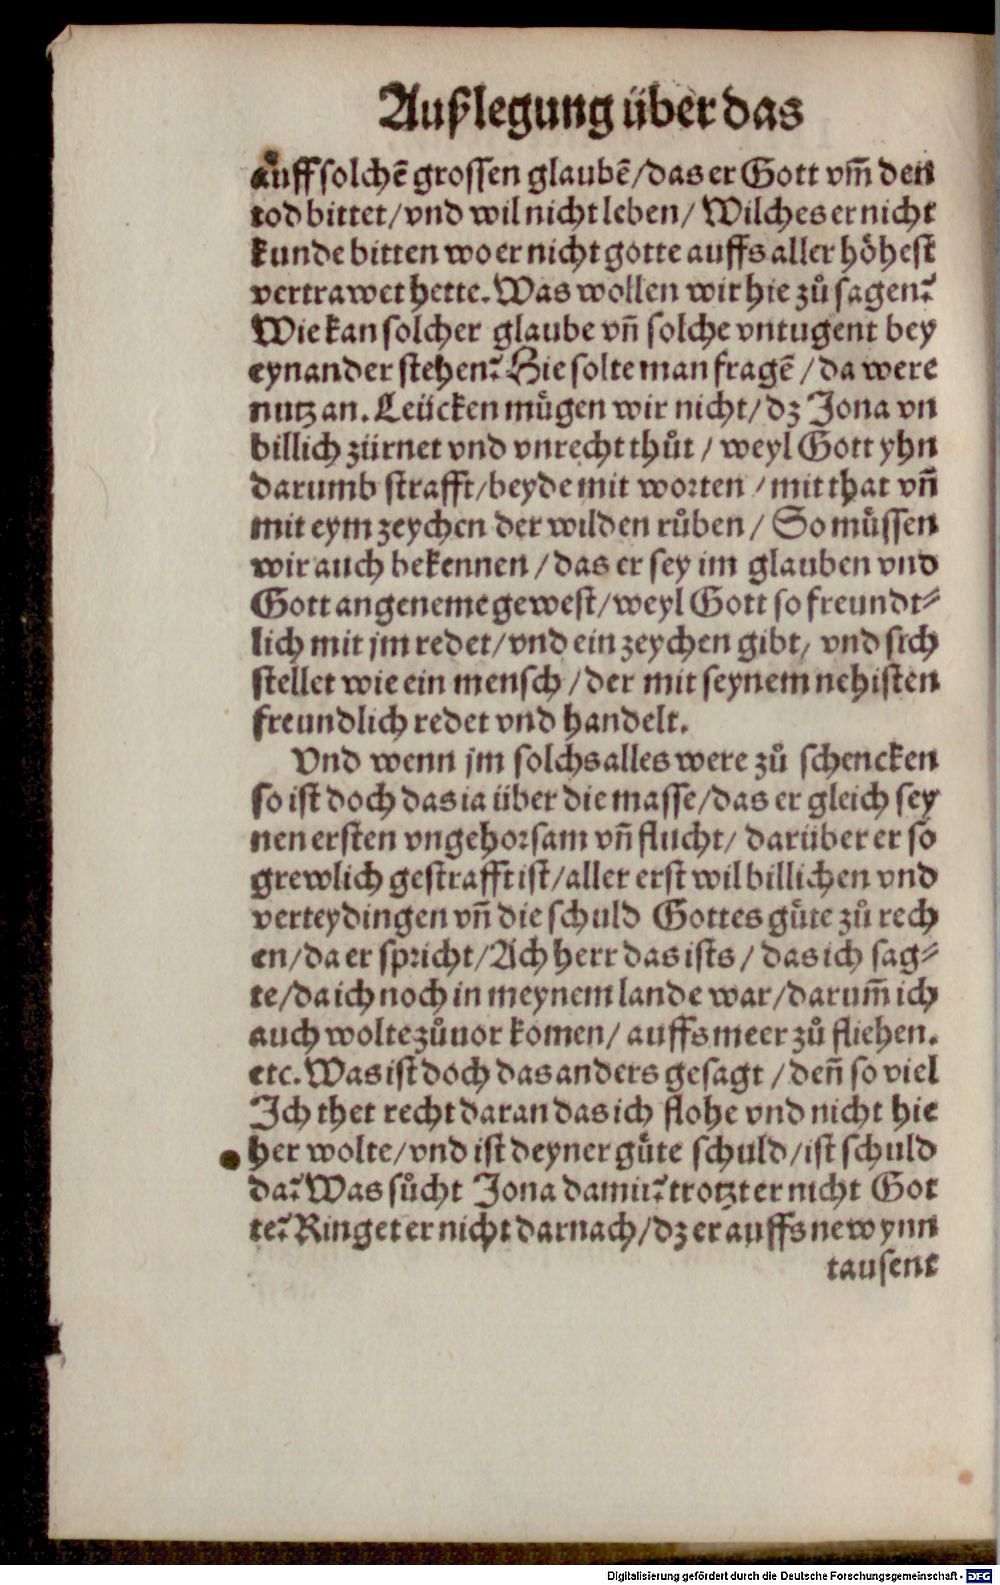 Außlegung über das
auff solchē grossen glaubē/das er Gott vm̄ den
tod bittet/vnd wil nicht leben/ Wilches er nicht
kunde bitten wo er nicht gotte auffs aller hoͤhest
vertrawet hette. Was wollen wir hie zuͦ sagen?
Wie kan solcher glaube vn̄ solche vntugent bey
eynander stehen? Hie solte man fragē /da were
nutz an. Leücken muͤgen wir nicht/dz Jona vn
billich zürnet vnd vnrecht thuͦt / weyl Gott yhn
darumb strafft/beyde mit worten /mit that vn̄
mit eym zeychen der wilden ruͦben/ So muͤssen
wir auch bekennen /das er sey im glauben vnd
Gott angeneme gewest/weyl Gott so freundt⸗
lich mit jm redet/vnd ein zeychen gibt/ vnd sich
stellet wie ein mensch /der mit seynem nehisten
freundlich redet vnd handelt.
Vnd wenn jm solchs alles were zuͦ schencken
so ist doch das ia über die masse/das er gleich sey
nen ersten vngehorsam vn̄ flucht/ darüber er so
grewlich gestrafft ist/aller erst wil billichen vnd
verteydingen vn̄ die schuld Gottes guͤte zuͦ rech
en/da er spricht/Ach herr das ists/ das ich sag⸗
te/da ich noch in meynem lande war/darum̄ ich
auch wolte zuͦuor komen/ auffs meer zuͦ fliehen.
etc. Was ist doch das anders gesagt /den̄ so viel
Ich thet recht daran das ich flohe vnd nicht hie
her wolte/vnd ist deyner guͤte schuld/ist schuld
da? Was suͦcht Jona damit? trotzt er nicht Got
te? Ringet er nicht darnach/dz er auffs new ynn
tausent
Digitalisierung gefördert durch die Deutsche Forschungsgemeinschaft - DFG